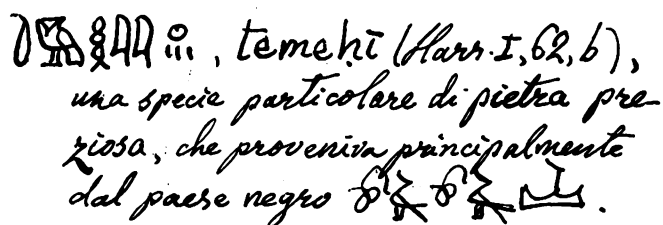 , temeḥī (Harr. I, 62, b),
una specie particolare di pietra pre-
ziosa, che proveniva principalmente
dal paese negro .